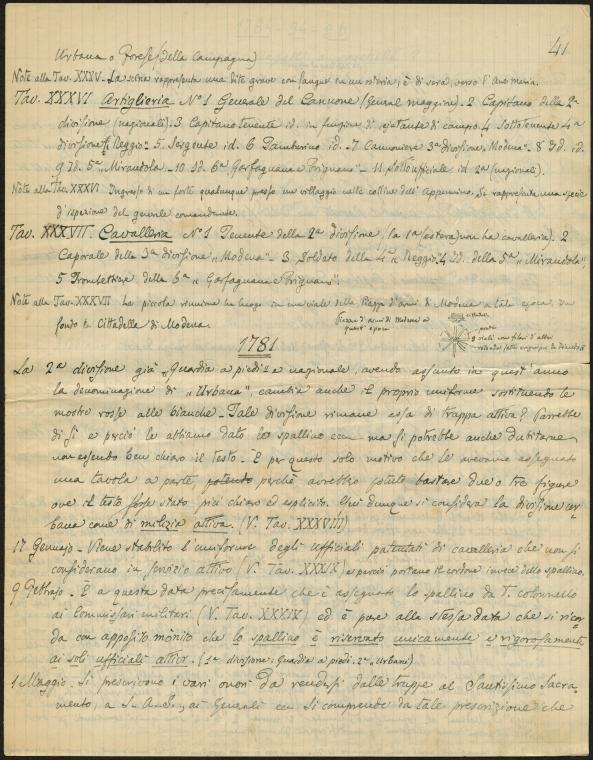 41
Urbana o Forese (della Campagna)
Note alla Tav. XXXV - La scena rappresenta una lite grave con sangue in un osteria; è di sera, verso l'Ave maria.
Tav. XXXVI Artiglieria Nº 1 Generale del Cannone (General maggiore). 2 Capitano della 2ª
divisione (nazionali). 3 Capitano tenente id. in funzione di ajutante di campo. 4 Sottotenente 4ª
divisione "Reggio" - 5. Sergente id. 6 Tamburino id. - 7 Cannoniere 3ª divisione "Modena" - 8 Id. id.
9 Id. 5ª "Mirandola" - 10 Id. 6ª "Garfagnana e Frignano" - 11 Sottoufficiale id 2ª (nazionali).
Note alla Tav. XXXVI. Ingresso di un forte qualunque presso un villaggio nelle colline dell'Appennino. Si rappresenta una specie
d'ispezione del generale comandante.
Tav. XXXVII Cavalleria Nº 1 Tenente della 2ª divisione, la 1ª (estera) non ha cavalleria). 2
Caporale della 3ª divisione "Modena" - 3 Soldato della 4ª "Reggio" 4 Id. della 5ª "Mirandola",
5 Trombettiere della 6ª "Garfagnana e Frignano".
Note alla Tav. XXXVII La piccola riunione ha luogo in un viale della Piazza d'armi di Modena a tale epoca. In
fondo la Cittadella di Modena.
Piazza d'armi di Modena a
quest'epoca
cittadella
ponte
8 viali con filari d'alberi
1781
La 2ª divisione già "Guardia a piedi" e nazionale, avendo assunto in quest'anno
la denominazione di "Urbana", cambia anche il proprio uniforme sostituendo le
mostre rosse alle bianche - Tale divisione rimane essa di truppa attiva? Sarebbe
di sì e perciò le abbiamo dato lo spallino ecc. ma si potrebbe anche dubitarne
non essendo ben chiaro il testo. È per questo solo motivo che le avevamo assegnato
una tavola a parte, potendo perchè avrebbe potuto bastare due o tre figure
ove il testo fosse stato più chiaro ed esplicito. Qui dunque si considera la divisione ur-
bana come di milizia attiva. (V. Tav. XXXVIII)
17 Gennajo - Viene stabilito l'uniforme degli ufficiali patentati di cavalleria che non si
considerano in servizio attivo (V. Tav. XXXIX) e perciò portano il cordone invece dello spallino.
9 Febbrajo. - È a questa data precisamente che è assegnato lo spallino da T. colonnello
ai Commissari militari (V. Tav. XXXIX) ed è pure alla stessa data che si ricor-
da con apposito mònito che lo spallino è riservato unicamente e rigorosamente
ai soli ufficiali attivi. (1ª divisione: Guardia a piedi. 2ª Urbani)
1 Maggio. Si prescrivono i vari onori da rendersi dalle truppe al Santissimo Sacra-
mento, a S. A. S., ai Generali ecc. Si comprende da tale prescrizione che